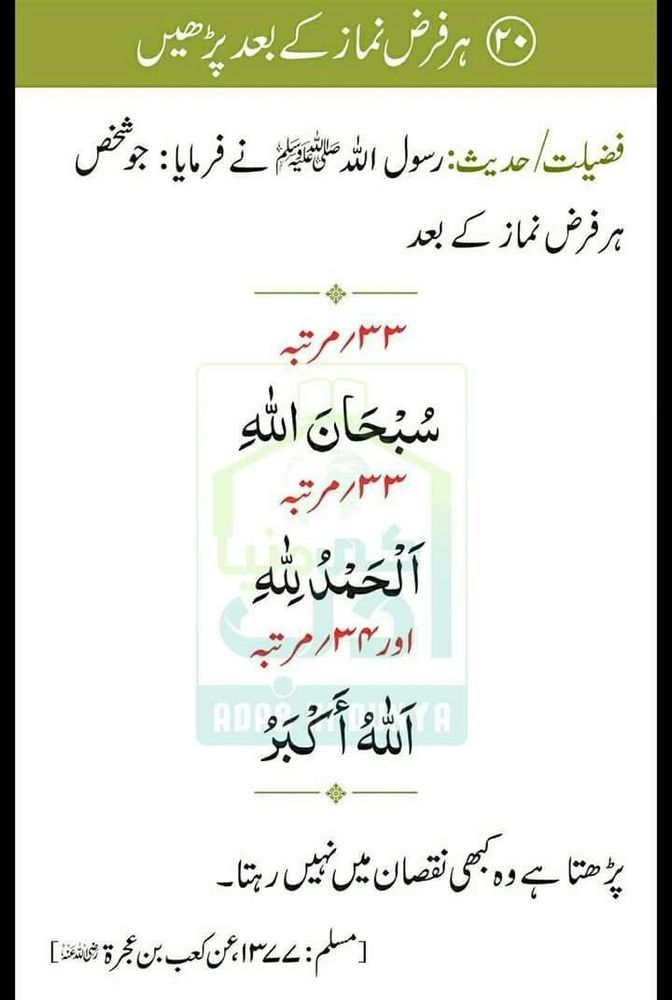 ۲۰ ہر فرض نماز کے بعد پڑھیں
فضیلت/حدیث: رسول اللہ ﷺ نے فرمایا: جو شخص
ہر فرض نماز کے بعد
۳۳/مرتبہ
سُبْحَانَ اللّٰهِ
۳۳/مرتبہ
اَلْحَمْدُ لِلّٰهِ
اور ۳۴/مرتبہ
اَللّٰهُ أَكْبَرُ
ادب کی دنیا
ADAB KI DUNYA
پڑھتا ہے وہ کبھی نقصان میں نہیں رہتا۔
[مسلم: ۱۳۷۷، عن کعب بن عجرة رضی اللہ عنہ]